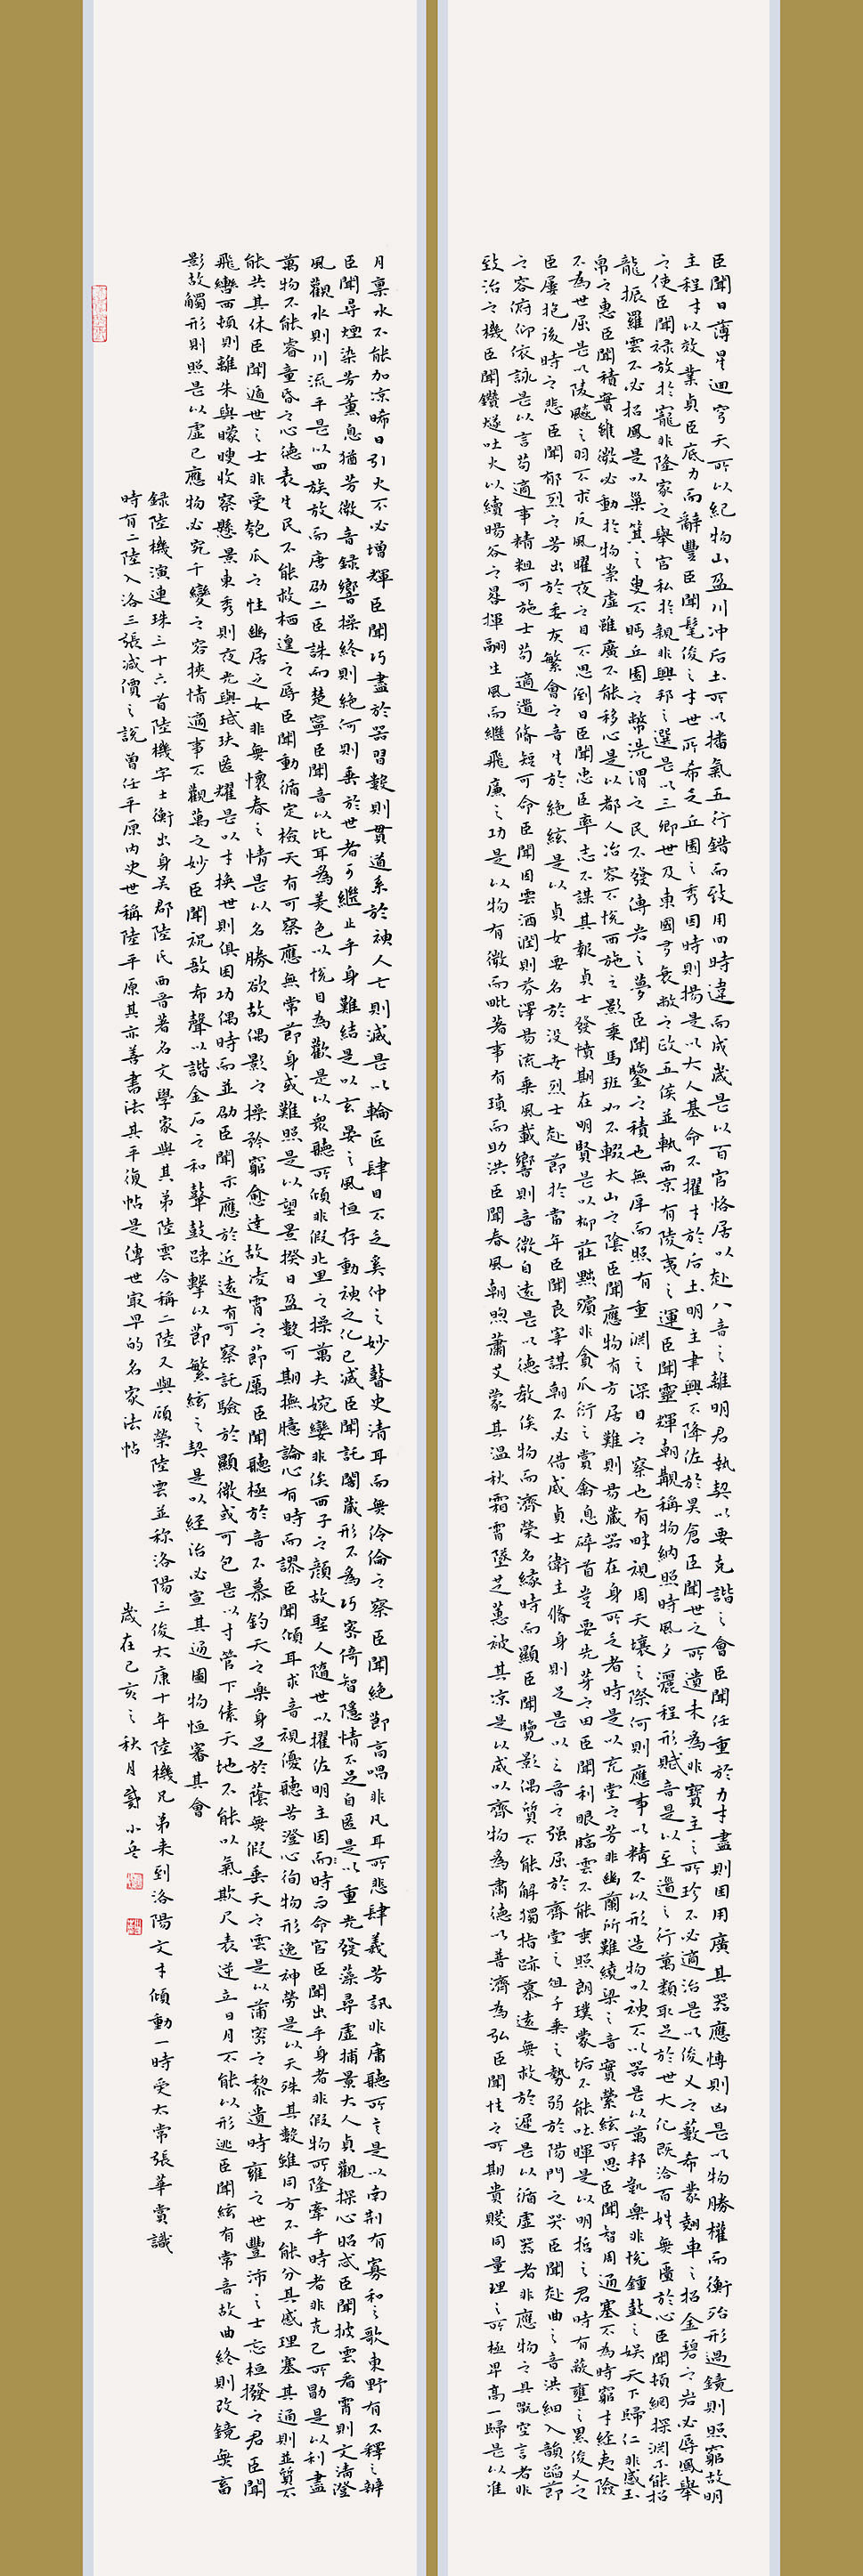 臣聞日薄星迴穹天所以紀物山盈川冲后土所以播氣五行錯而致用四時違而成歲是以百官恪居以赴八音之離明君執契以要克諧之會臣聞任重於力才盡則困用廣其器應博則凶是以物勝權而衡殆形過鏡則照窮故明
主程才以效業貞臣底力而辭豐臣聞髦俊之才世所希乏丘園之秀因時則揚是以大人基命不擢才於后土明主聿興不降佐於昊倉臣聞世之所遺未為非寶主之所珍不必適治是以俊乂之藪希蒙翹車之招金碧之岩必辱鳳舉
之使臣聞禄放於寵非隆家之舉官私於親非興邦之選是以三卿世及東國多衰敝之政五侯並軌西京有陵夷之運臣聞靈輝朝覯稱物納照時風夕灑程形賦音是以至道之行萬類取足於世大化既洽百姓無匱於心臣聞頓網探淵不能招
龍振羅雲不必招鳳是以巢箕之叟不眄丘園之幣洗渭之民不發傅岩之夢臣聞鑒之積也無厚而照有重淵之深目之察也有畔視周天壤之際何則應事以精不以形造物以神不以器是以萬邦凱樂非悅鍾鼓之娱天下歸仁非感玉
帛之惠臣聞積實雖微必動於物崇虛雖廣不能移心是以都人冶容不悅西施之影乘馬班如不輟太山之陰臣聞應物有方居難則易藏器在身所乏者時是以充堂之芳非幽蘭所難繞梁之音實縈絃所思臣聞智周通塞不為時窮才経夷險
不為世屈是以陵飈之羽不求反風曜夜之目不思倒日臣聞忠臣率志不謀其報貞士發憤期在明賢是以柳莊黜殯非貪瓜衍之賞禽息碎首豈要先茅之田臣聞利眼臨雲不能垂照朗璞蒙垢不能吐暉是以明哲之君時有蔽壅之累俊乂之
臣屢抱後時之悲臣聞郁烈之芳出於委灰繁會之音生於絶絃是以貞女要名於没世烈士赴節於當年臣聞良宰謀朝不必借威貞士衛主脩身則足是以三晉之强屈於齊堂之俎千乘之勢弱於陽門之哭臣聞赴曲之音洪細入韻蹈節
之容俯仰依詠是以言苟適事精粗可施士苟適道脩短可命臣聞因雲洒潤則芬澤易流乘風載響則音徽自遠是以德教俟物而濟榮名緣時而顯臣聞覽影偶質不能解獨指跡慕遠無救於遲是以循虛器者非應物之具翫空言者非
致治之機臣聞鑽燧吐火以續暘谷之晷揮翮生風而繼飛廉之功是以物有微而毗著事有瑣而助洪臣聞春風朝煦蕭艾蒙其温秋霜宵墜芝蕙被其凉是以威以齊物為肅德以普濟為弘臣聞性之所期貴賤同量理之所極卑高一歸是以准
月稟水不能加凉晞日引火不必增輝臣聞巧盡於器習數則貫道系於神人亡則滅是以輪匠肆目不乏奚仲之妙瞽史清耳而無伶倫之察臣聞絶節高唱非凡耳所悲肆義芳訊非庸聽所善是以南荆有寡和之歌東野有不釋之辯
臣聞尋煙染芬薰息猶芳徵音録響操終則絶何則垂於世者可繼止乎身難結是以玄晏之風恒存動神之化已滅臣聞託闇藏形不為巧密倚智隱情不足自匿是以重光發藻尋虛捕景大人貞觀探心昭忒臣聞披雲看霄則天文清澄
風觀水則川流平是以四族放而唐劭二臣誅而楚寧臣聞音以比耳為美色以悅目為歡是以衆聽所傾非假北里之操萬夫婉孌非俟西子之顏故聖人隨世以擢佐明主因而時而命官臣聞出乎身者非假物所隆牽乎時者非克己所勖是以利盡
萬物不能睿童昏之心德表生民不能救栖遑之辱臣聞動循定檢天有可察應無常節身或難照是以望景揆日盈數可期撫臆論心有時而謬臣聞傾耳求音視優聽苦澄心徇物形逸神勞是以天殊其數雖同方不能分其慼理塞其通則並質不
能共其休臣聞遁世之士非受匏瓜之性幽居之女非無懷春之情是以名勝欲故偶影之操矜窮愈達故凌霄之節厲臣聞聽極於音不慕鈞天之樂身足於蔭無假垂天之雲是以蒲密之黎遺時雍之世豐沛之士忘桓撥之君臣聞
飛轡西頓則離朱與矇瞍收察懸景東秀則夜光與碔砆匿耀是以才換世則俱困功偶時而並劭臣聞示應於近遠有可察託驗於顯微或可包是以寸管下傃天地不能以氣欺尺表逆立日月不能以形逃臣聞絃有常音故曲終則改鏡無畜
影故觸形則照是以虛己應物必究千變之容挾情適事不觀萬之妙臣聞祝敔希聲以諧金石之和鼙鼓踈擊以節繁絃之契是以経治必宣其通圖物恒審其會
録陸機演連珠三十六首陸機字士衡出身吴郡陸氏西晋著名文學家與其弟陸雲合稱二陸又與顧榮陸雲並称洛陽三俊太康十年陸機兄弟来到洛陽文才傾動一時受太常張華賞識
時有二陸入洛三張减價之說曾任平原内史世稱陸平原其亦善書法其平復帖是傳世㝡早的名家法帖
歲在己亥之秋月 小兵